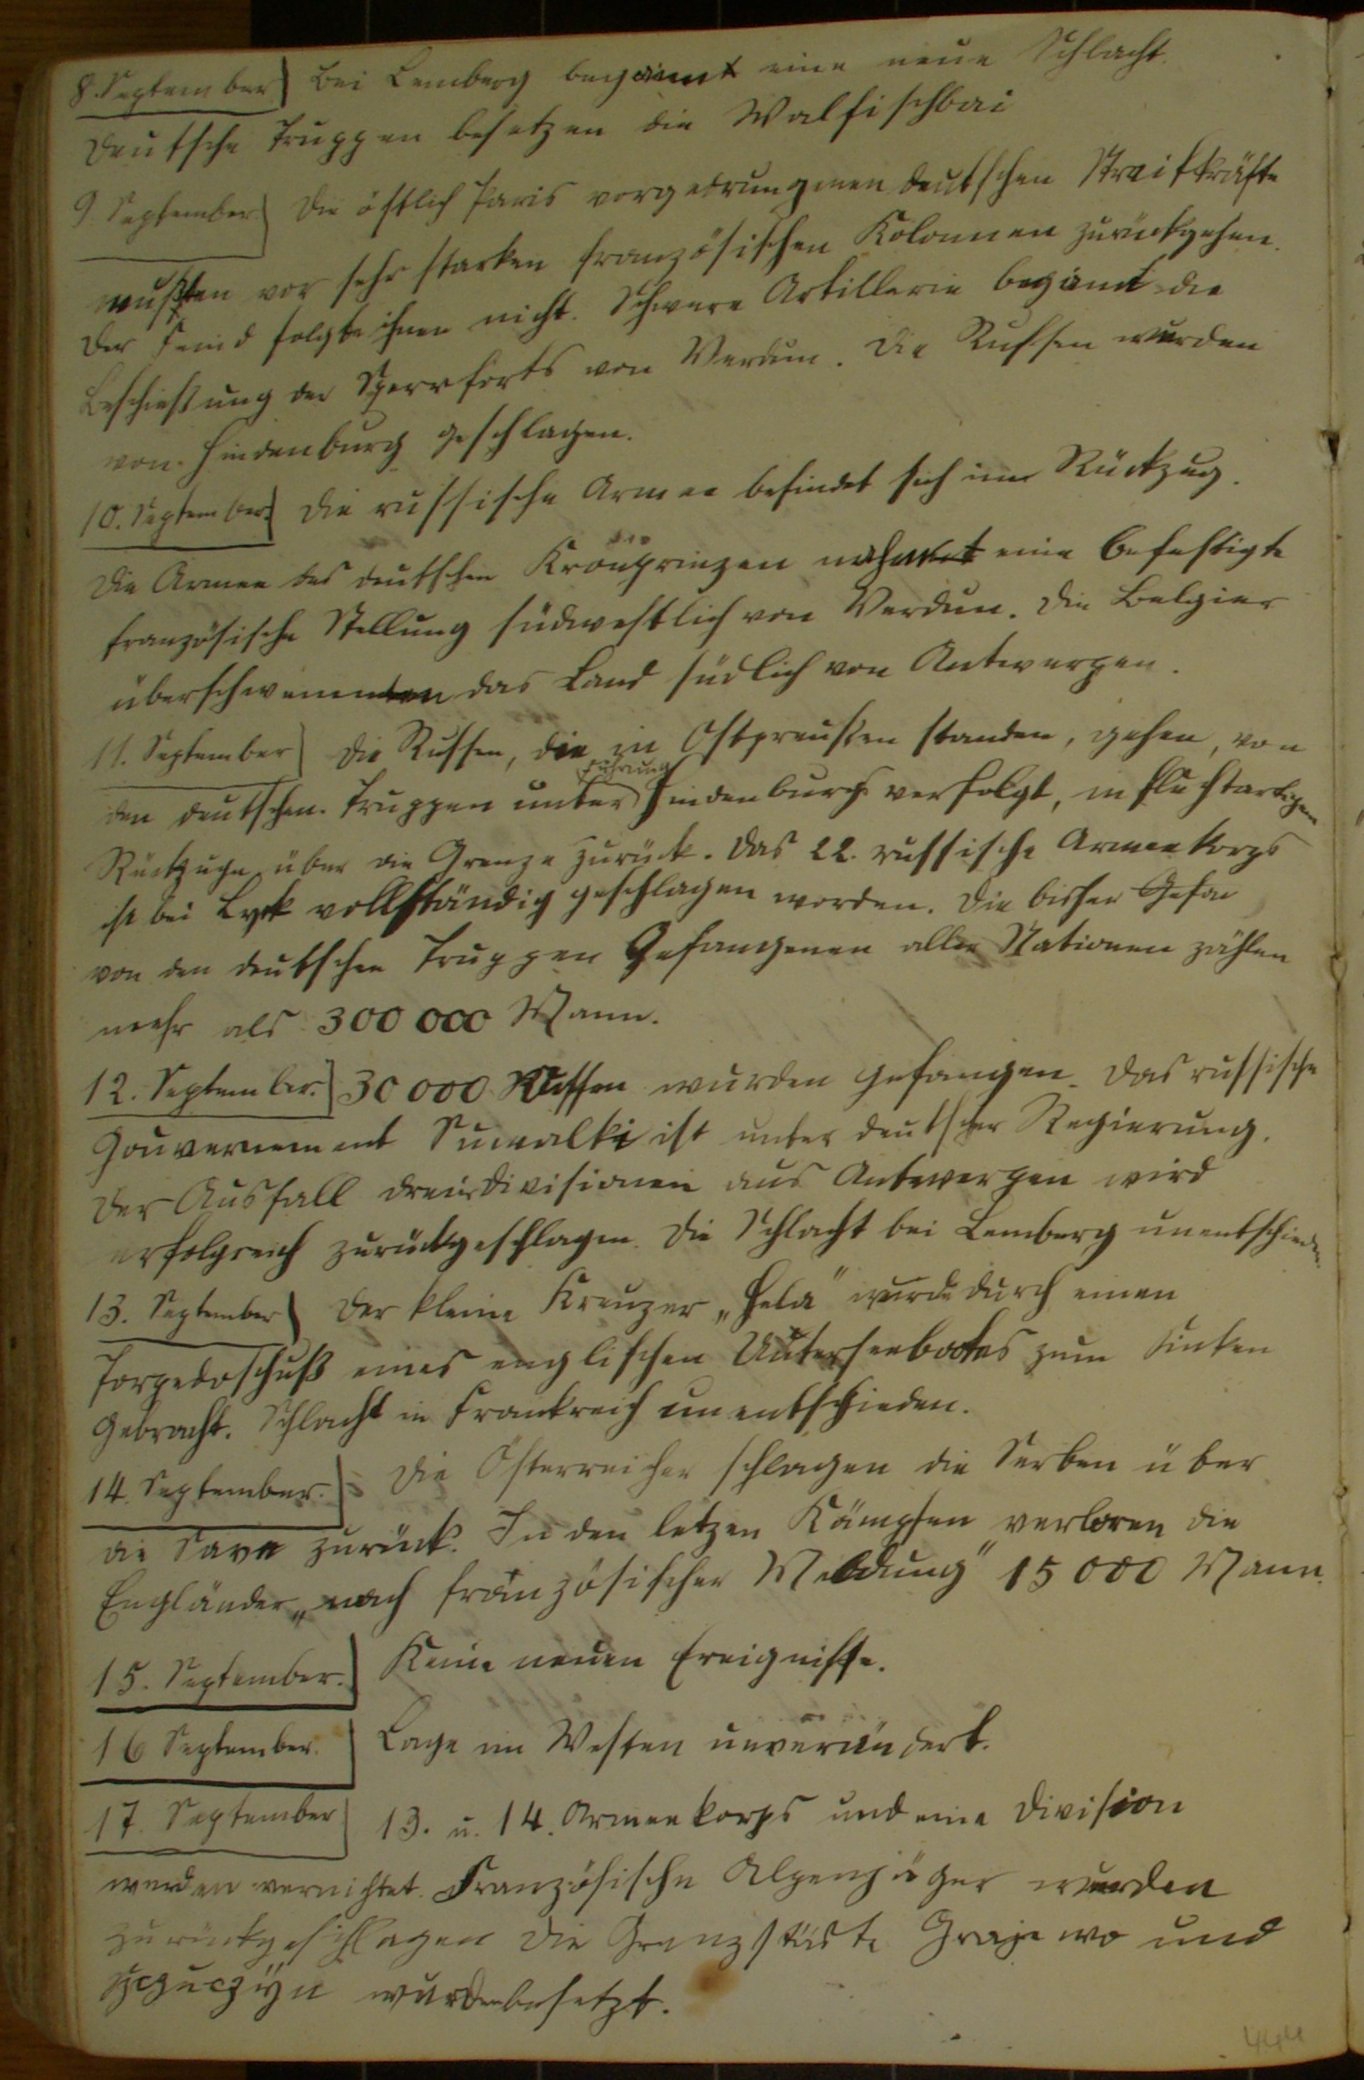 8. September Bei Lemberg beginnt eine neue Schlacht.
Deutsche Truppen besetzen die Walfischbai
9. September Die östlich Paris vorgedrungenen deutschen Streitkräfte
mußten vor sehr starken französischen Kolonnen zurückgehen.
Der Feind folgte ihnen nicht. Schwere Artillerie beginnt die
Beschießung der Sperrforts von Verdun. Die Russen wurden
von Hindenburg geschlagen.
10. September Die russische Armee befindet sich im Rückzug.
Die Armee des deutschen Kronprinzen nahm eine befestigte
französische Stellung südwestlich von Verdun. Die Belgier
überschwemmten das Land südlich von Antwerpen.
11. September Die Russen, die in Ostpreußen standen, gehen, von
den deutschen Truppen unter Führung Hindenburgs verfolgt, in fluchtartigem
Rückzuge über die Grenze zurück. Das 22. russische Armeekorps
ist bei Lyck vollständig geschlagen worden. Die bisher Gefan
von den deutschen Truppen Gefangenen aller Nationen zählen
mehr als 300 000 Mann.
12. September. 30 000 Russen wurden gefangen. Das russische
Gouvernement Suwalki ist unter deutscher Regierung.
Der Ausfall dreier Divisionen aus Antwerpen wird
erfolgreich zurückgeschlagen. Die Schlacht bei Lemberg unentschieden.
13. September Der kleine Kreuzer „Hela" wurde durch einen
Torpedoschuß eines englischen Unterseebootes zum Sinken
gebracht. Schlacht in Frankreich unentschieden.
14. September. Die Österreicher schlagen die Serben über
die Save zurück. In den letzen Kämpfen verloren die
Engländer „nach französischer Meldung" 15 000 Mann.
15. September. Keine neuen Ereignisse.
16 September. Lage im Westen unverändert.
17. September 13. u. 14. Armeekorps und eine Division
werden vernichtet. Französische Alpenjäger wurden
zurückgeschlagen Die Grenzstädte Grajewo und
Szczuczyn wurden besetzt.